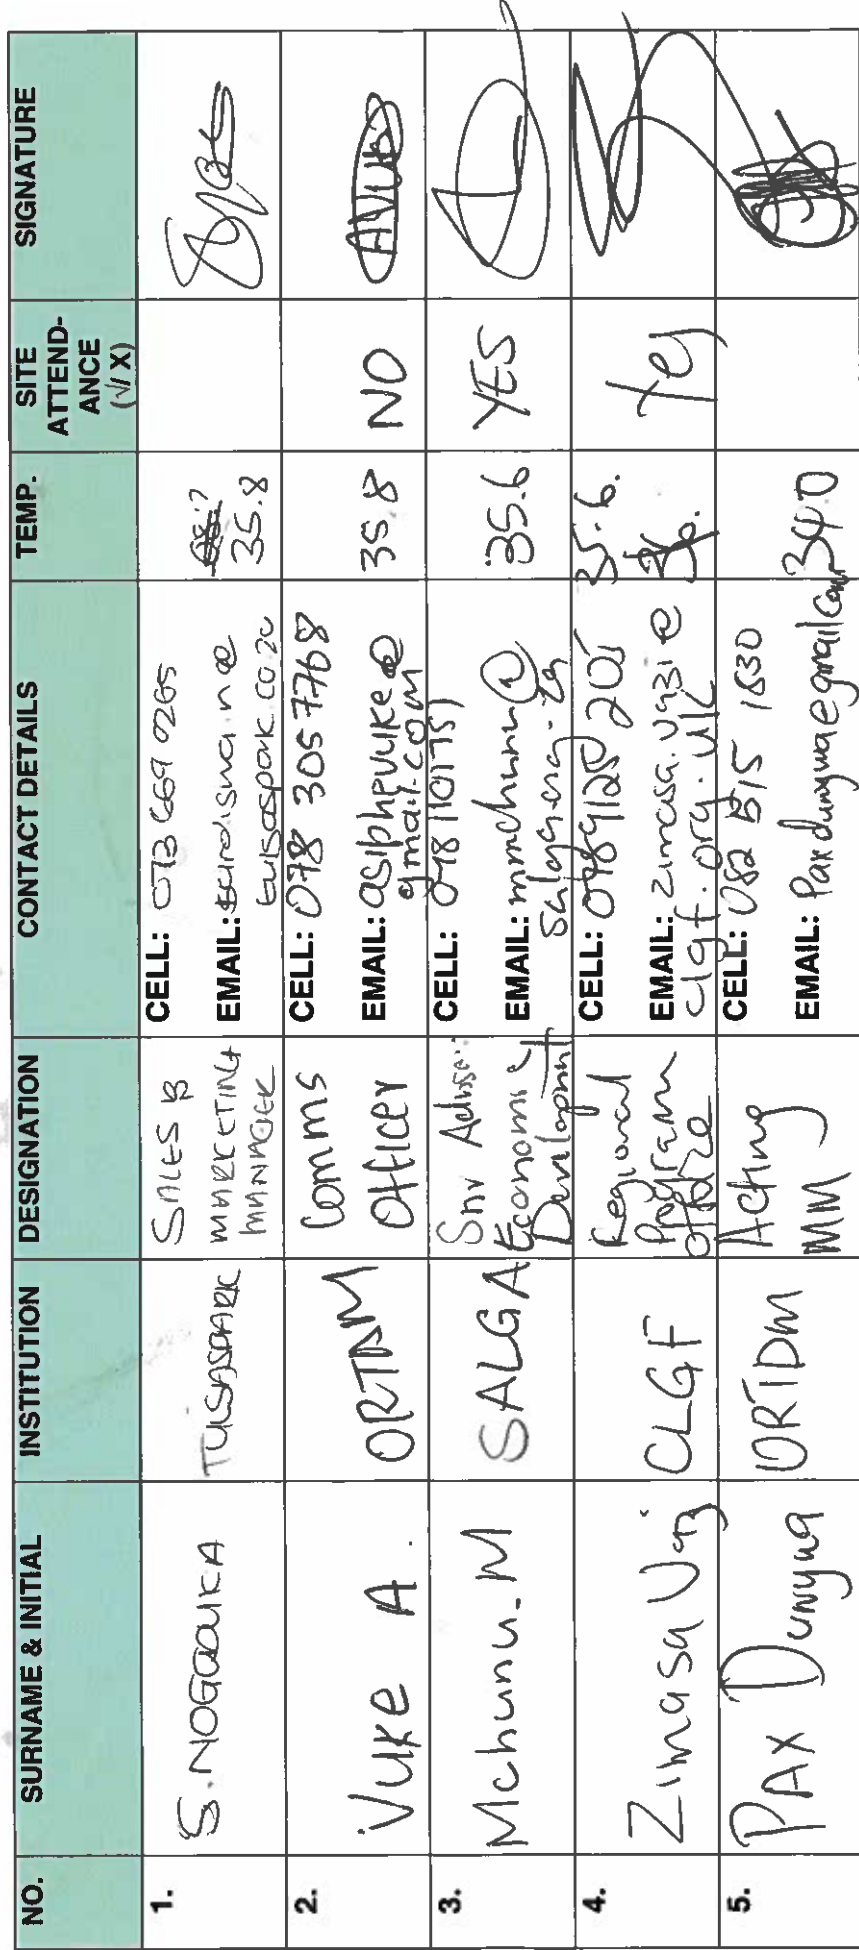 NO. SURNAME & INITIAL INSTITUTION DESIGNATION CONTACT DETAILS TEMP. SITE ATTEND-ANCE (√/ X) SIGNATURE
1.
TULSASPARK
SALES &
MARKETING
MANAGER
CELL: 073 669 0265
EMAIL:
tulsaspark.co.za
35.8
2.
Vuke A.
ORTDM
Comms
Officer
CELL: 078 305 7768
EMAIL: asiphevuke@
gmail.com
35.8
NO
AVuke
3.
Mchunu. M
SALGA
Snr Advisor
Economic
Development
CELL:
EMAIL: mmchunu@
salga.org.za
35.6
YES
4.
Zimasa Vazi
CLGF
Regional
Program
CELL: 0789125 201
EMAIL: zimasa.vazi@
clgf.org.uk
35.6.
36.
Yes
5.
PAX Dunywa
ORTDM
Acting
MM
CELL: 082 515 1830
EMAIL: Paxdunywa@gmail.com
34.0